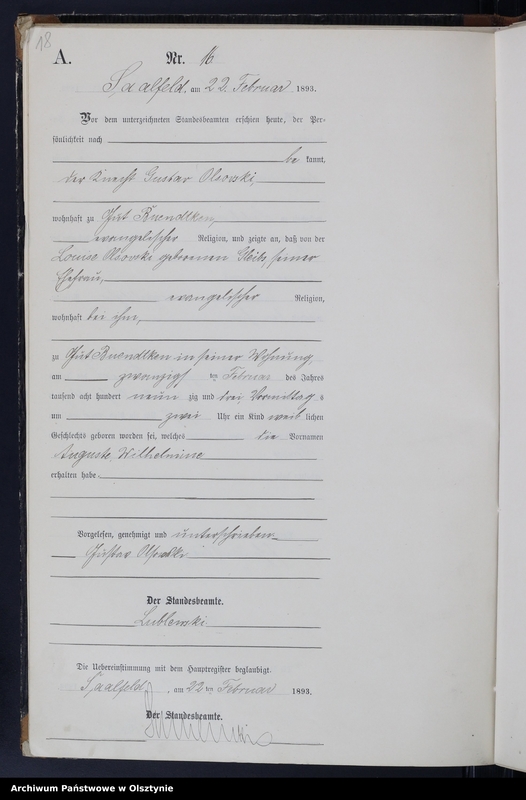 18
A. Nr. 16
Saalfeld, am 22. Februar 1893.
Vor dem unterzeichneten Standesbeamten erschien heute, der Per-
sönlichkeit nach
be kannt,
der Knecht Gustav Olsowski,
wohnhaft zu Gut Kuendtken,
evangelischer Religion, und zeigte an, daß von der
Louise Olsowski geborenen seiner
Ehefrau,
evangelischer Religion,
wohnhaft bei ihm,
zu Gut Kuendtken in seiner Wohnung
am zwanzigsten Februar des Jahres
tausend acht hundert neun zig und drei Vormittag s
um zwei Uhr ein Kind weib lichen
Geschlechts geboren worden sei, welches die Vornamen
Auguste Wilhelmine
erhalten habe.
Vorgelesen, genehmigt und unterschrieben
Gustav Olsowski
Der Standesbeamte.
Lublewski
Die Uebereinstimmung mit dem Hauptregister beglaubigt.
Saalfeld, am 22 ten Februar 1893.
Der Standesbeamte.
Archiwum Państwowe w Olsztynie